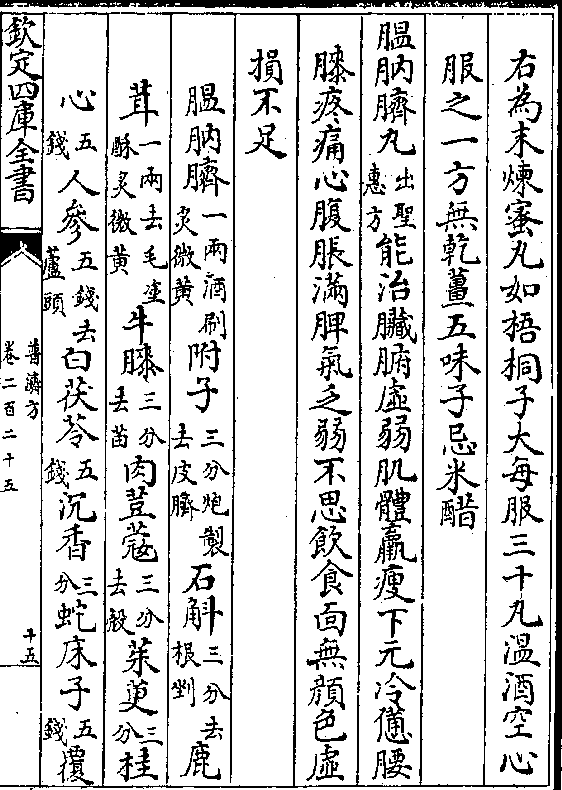 右為末煉蜜丸如梧桐子大每服三十丸溫酒空心
服之一方無乾薑五味子忌米醋
膃肭臍丸出聖惠方能治臟腑虛弱肌體羸瘦下元冷憊腰
膝疼痛心腹脹滿脾氣乏弱不思飲食面無顏色虛
損不足
膃肭臍一兩酒刷炙微黃附子三分炮製去皮臍石斛三分去根剉鹿
茸一兩去毛塗酥炙微黃牛膝三分去苗肉荳蔻三分去殼茱萸三分桂
心五錢人參五錢去蘆頭白茯苓五錢沉香三分蛇床子五錢覆
欽定四庫全書
普濟方
卷二百二十五
十五